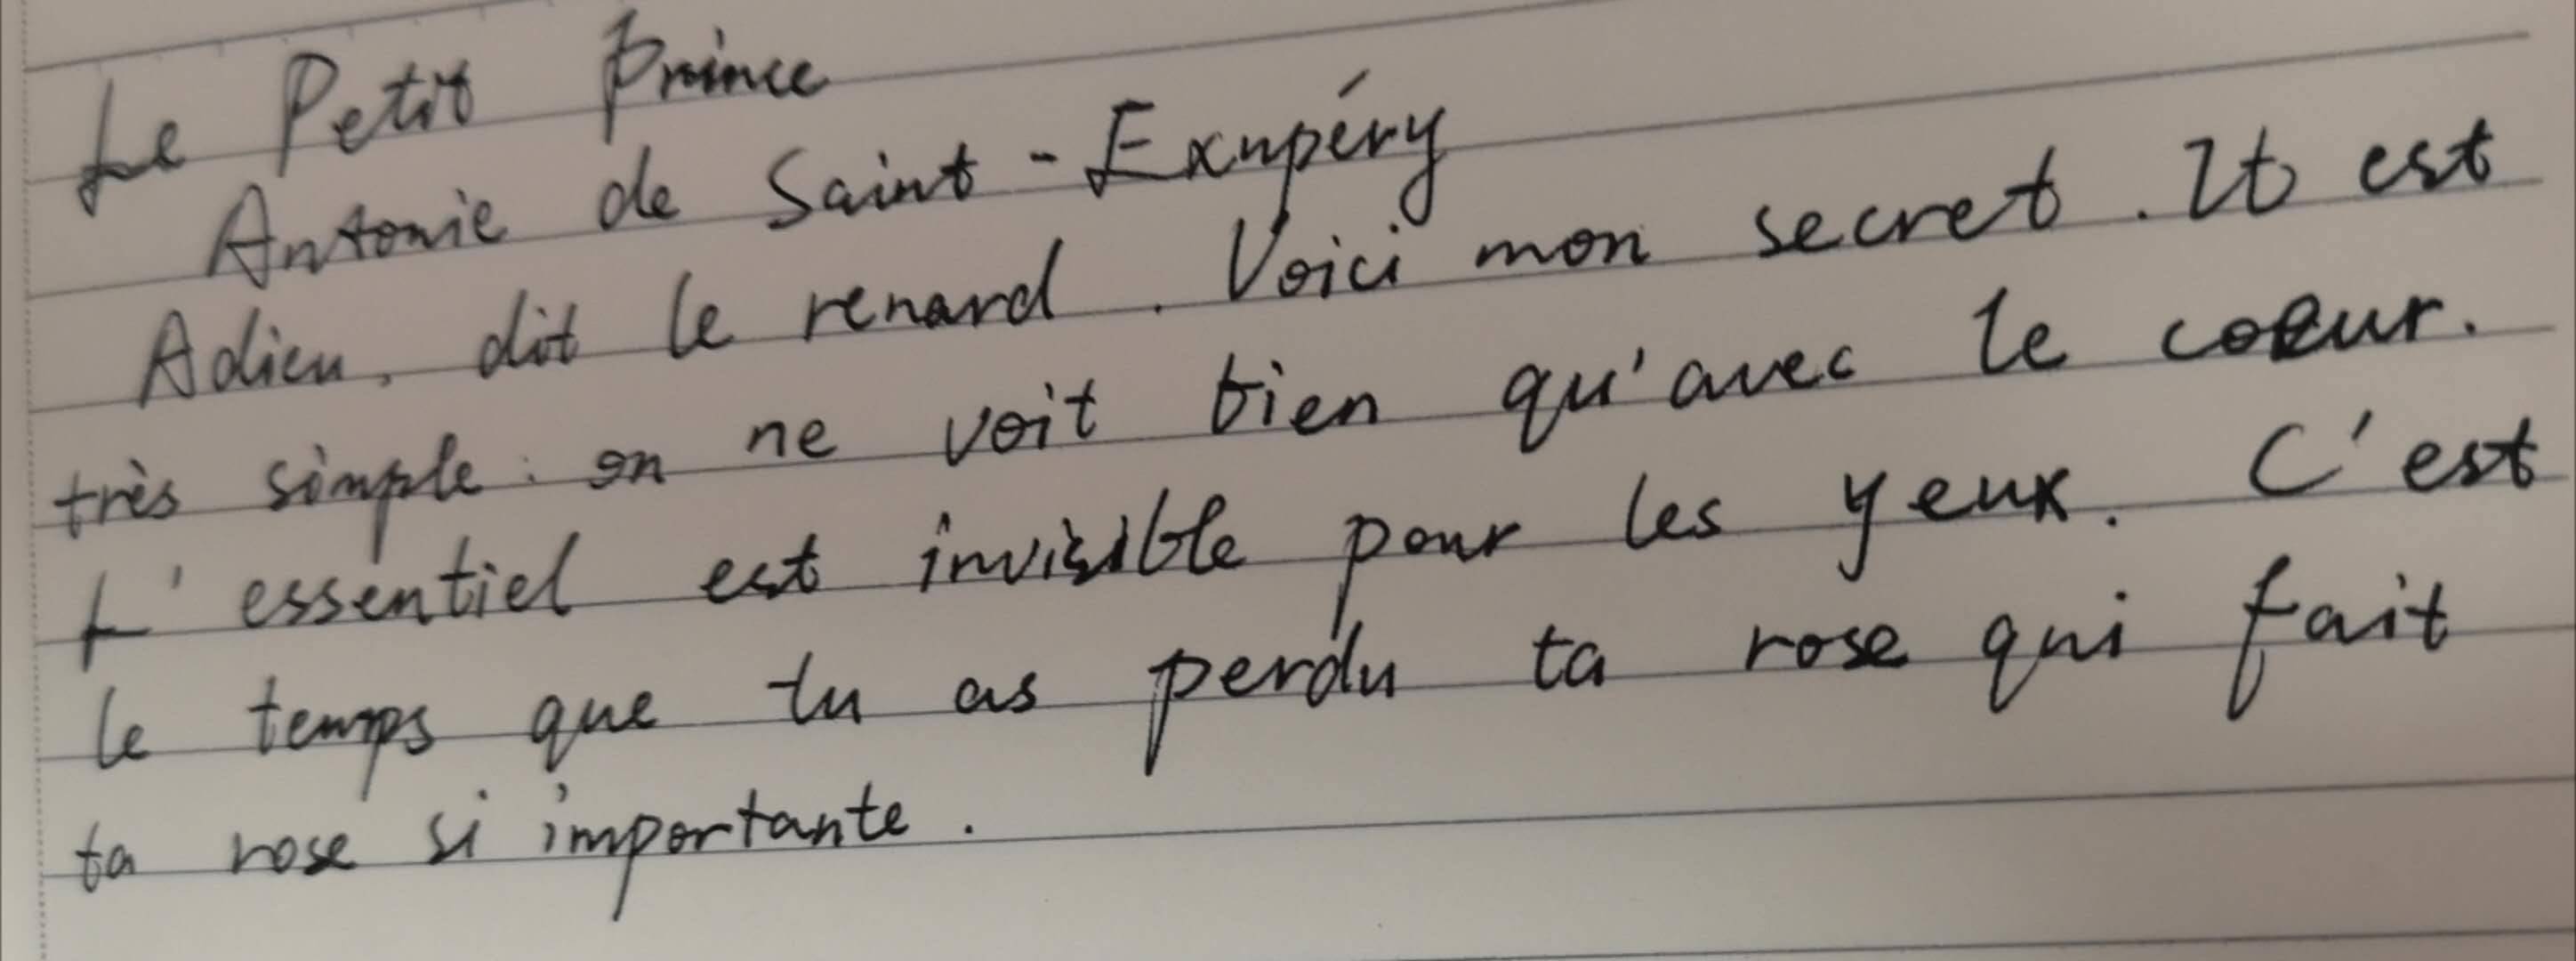 Le Petit Prince
Antonie de Saint-Exupéry
Adieu, dit le renard. Voici mon secret. It est
très simple: on ne voit bien qu'avec le cœur.
L'essentiel est invisible pour les yeux. C'est
le temps que tu as perdu ta rose qui fait
ta rose si importante.